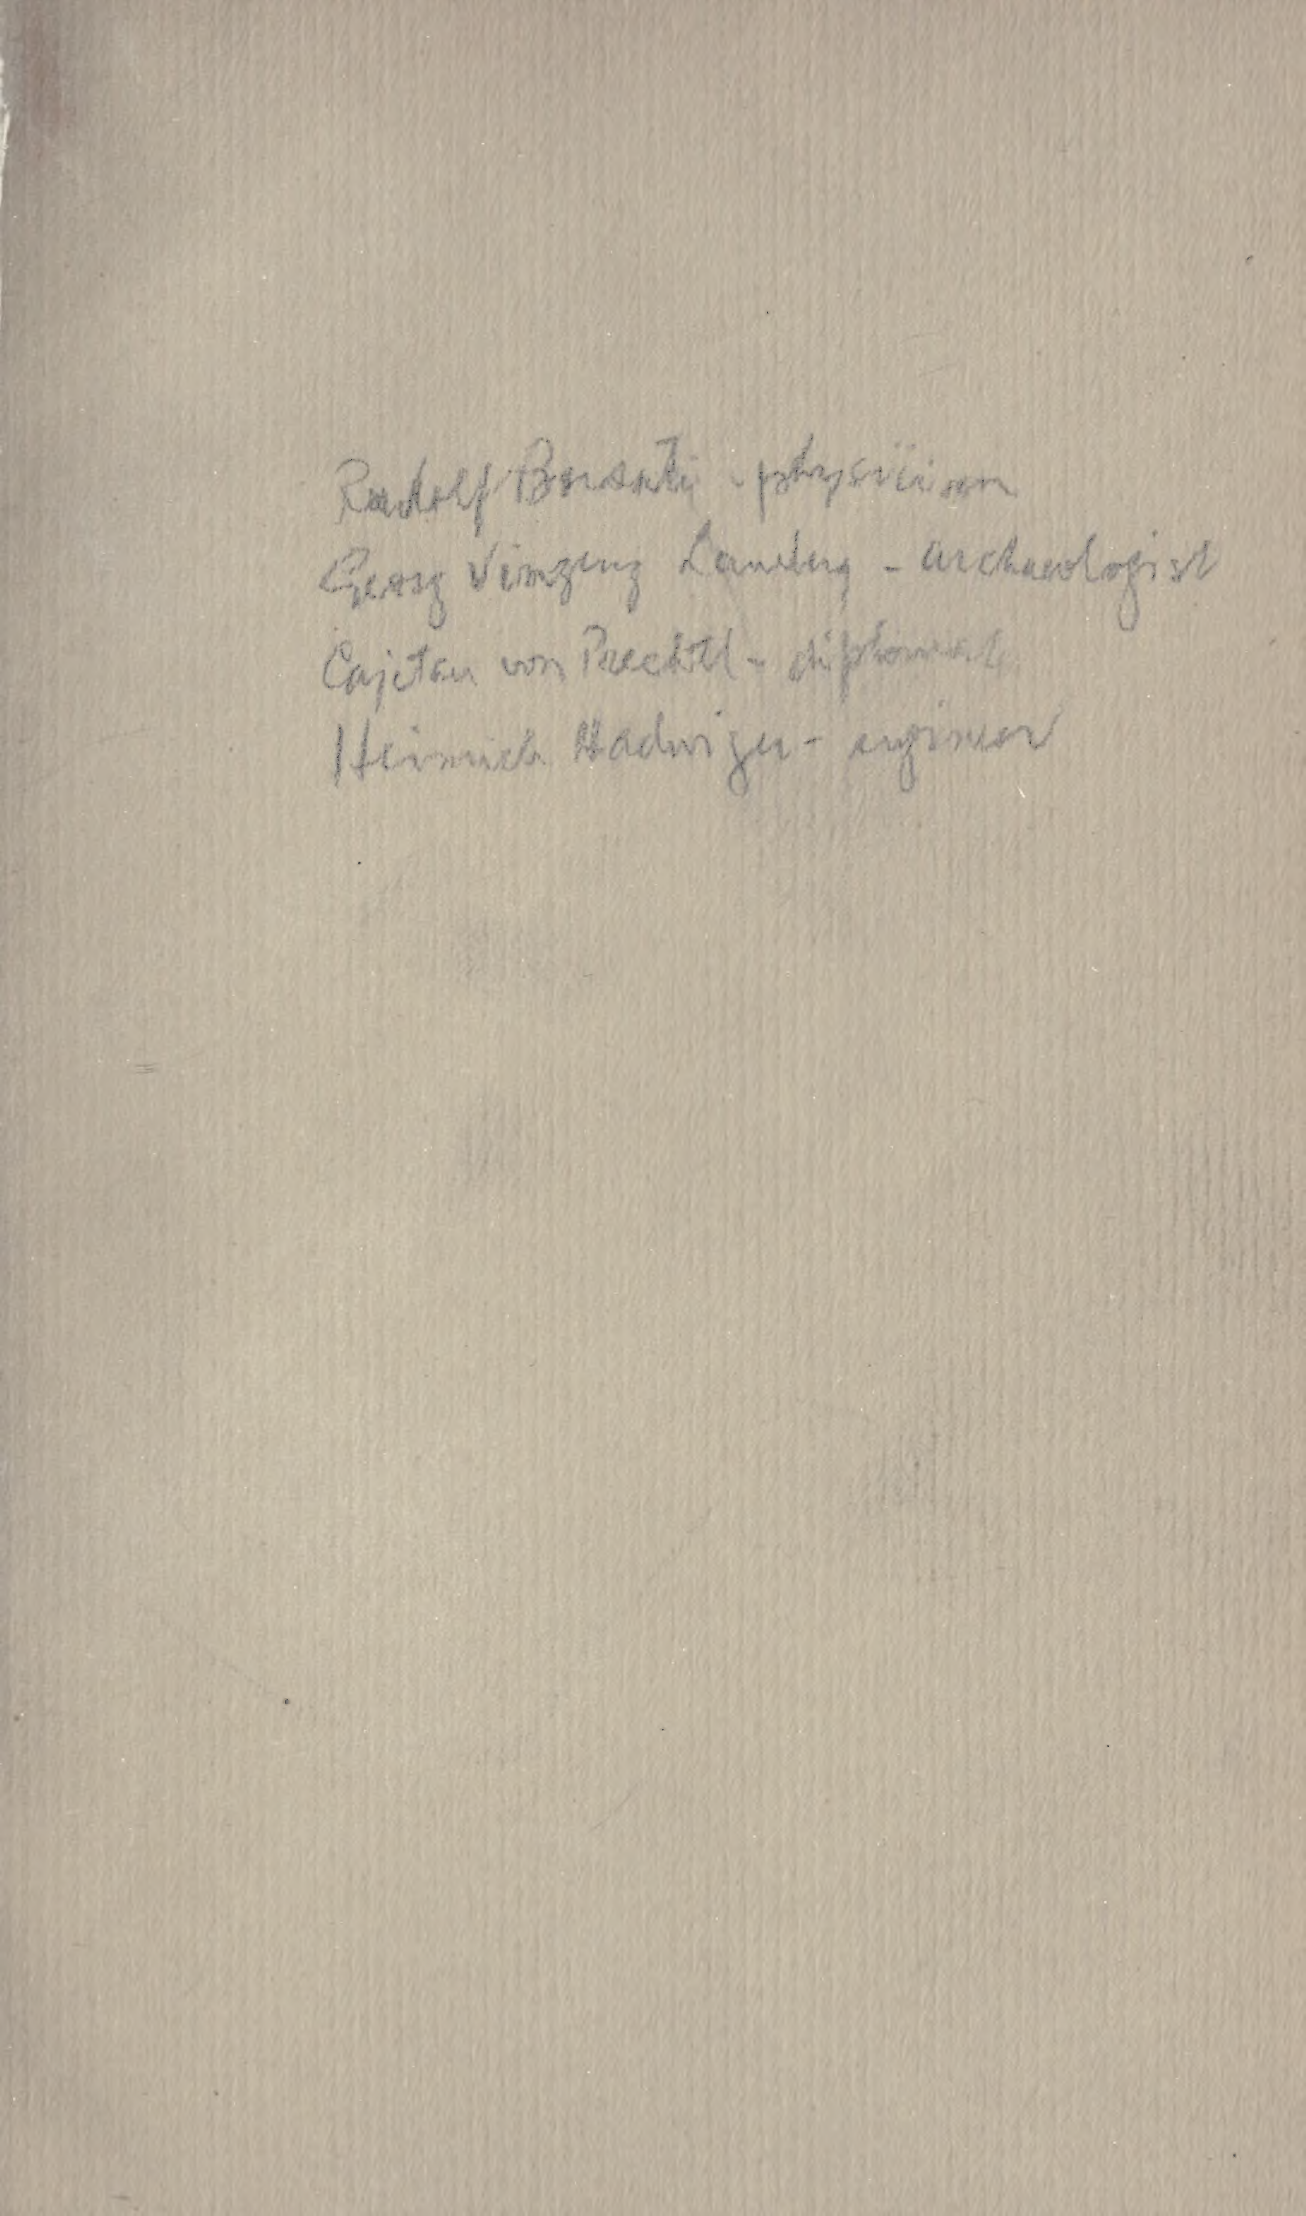 Rudolf - physician
Georg Vinzenz - archaeologist
Cajetan von Prechtl - diplomat
Heinrich Hadwiger - engineer